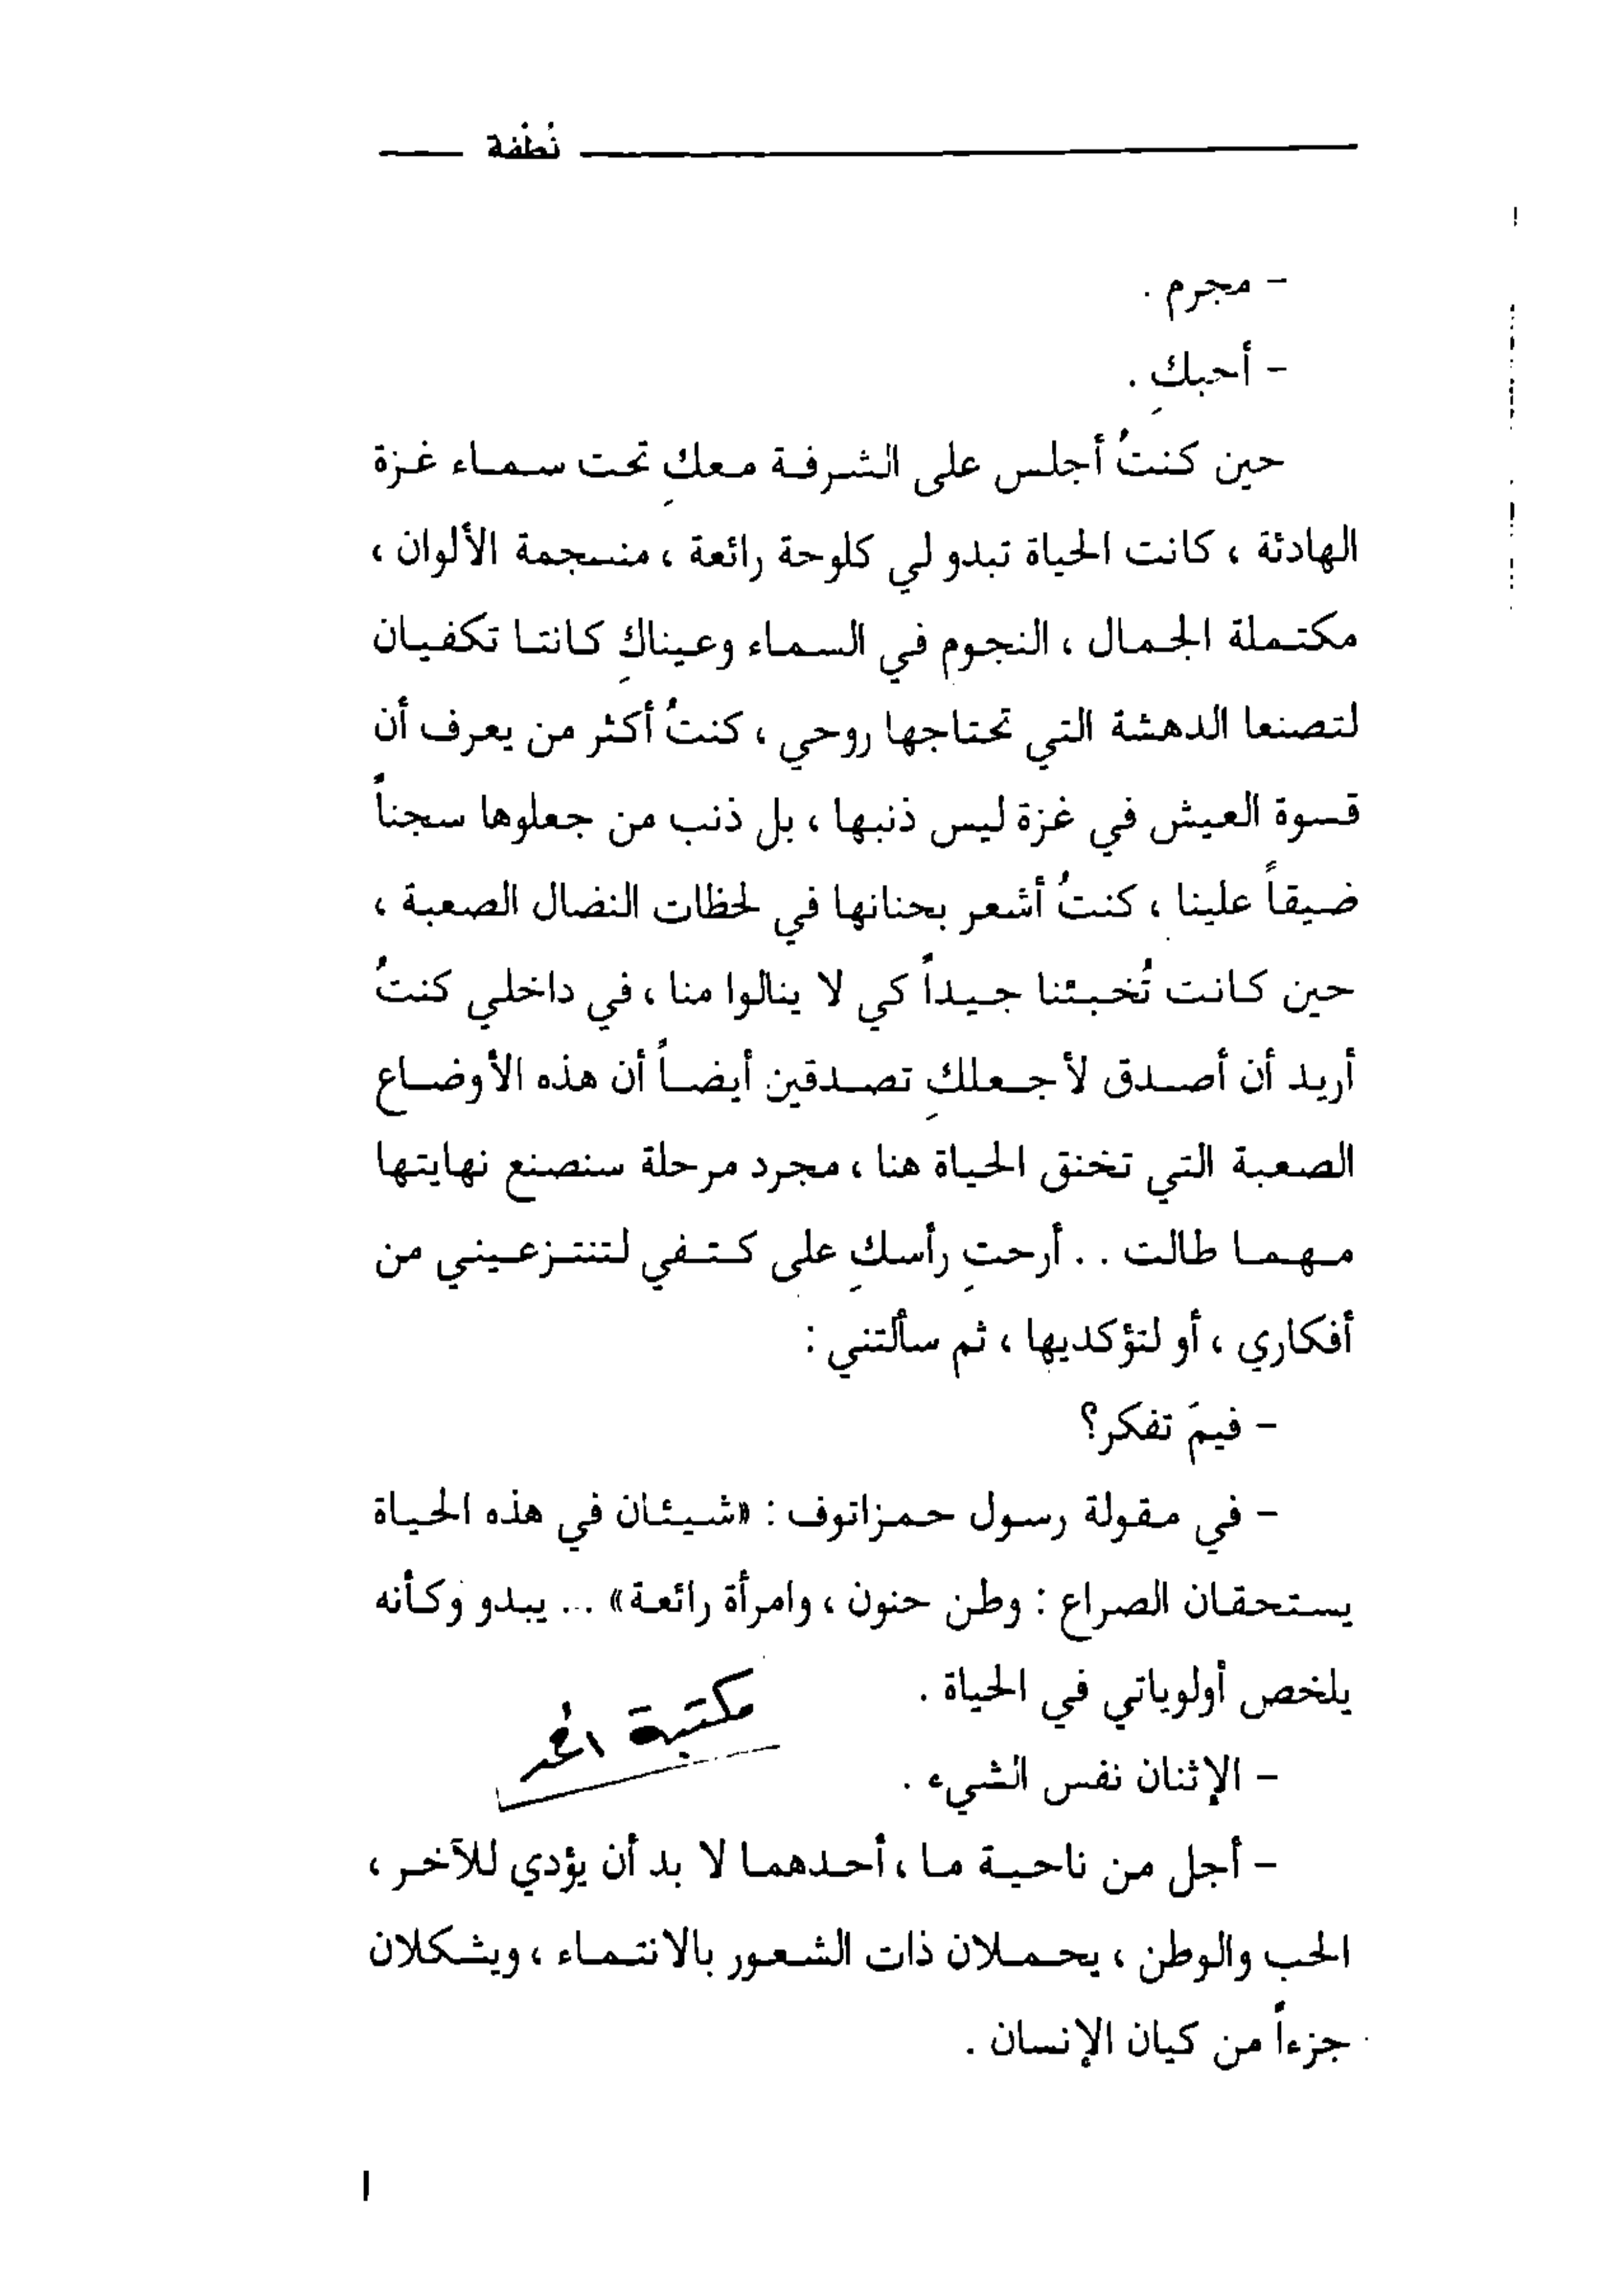 نُطْفة
- مجرم .
- أحبكِ .
حين كنتُ أجلس على الشرفة معكِ تحت سماء غزة
الهادئة ، كانت الحياة تبدو لي كلوحة رائعة ، منسجمة الألوان ،
مكتملة الجمال ، النجوم في السماء وعيناكِ كانتا تكفيان
لتصنعا الدهشة التي تحتاجها روحي ، كنتُ أكثر من يعرف أن
قسوة العيش في غزة ليس ذنبها ، بل ذنب من جعلوها سجناً
ضيقاً علينا ، كنتُ أشعر بحنانها في لحظات النضال الصعبة ،
حين كانت تُخبئنا جيداً كي لا ينالوا منا ، في داخلي كنتُ
أريد أن أصدق لأجعلكِ تصدقين أيضاً أن هذه الأوضاع
الصعبة التي تخنق الحياة هنا ، مجرد مرحلة سنصنع نهايتها
مهما طالت . . أرحتِ رأسكِ على كتفي لتنتزعيني من
أفكاري ، أو لتؤكديها ، ثم سألتني :
- فيمَ تفكر؟
- في مقولة رسول حمزاتوف : «شيئان في هذه الحياة
يستحقان الصراع : وطن حنون ، وامرأة رائعة» ... يبدو وكأنه
يلخص أولوياتي في الحياة .
مكتبة
- الإثنان نفس الشيء .
- أجل من ناحية ما ، أحدهما لا بد أن يؤدي للآخر ،
الحب والوطن ، يحملان ذات الشعور بالانتماء ، ويشكلان
جزءاً من كيان الإنسان .